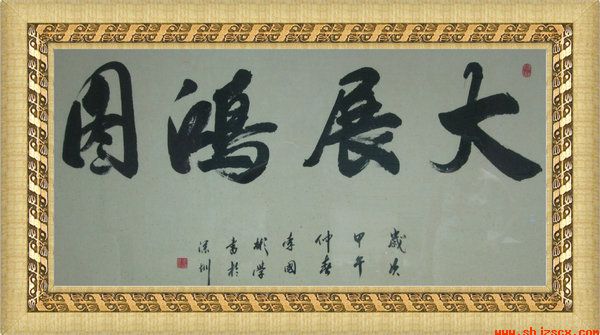 大展鴻图
歲次
甲午
仲春
李國
彬學
書於
深圳